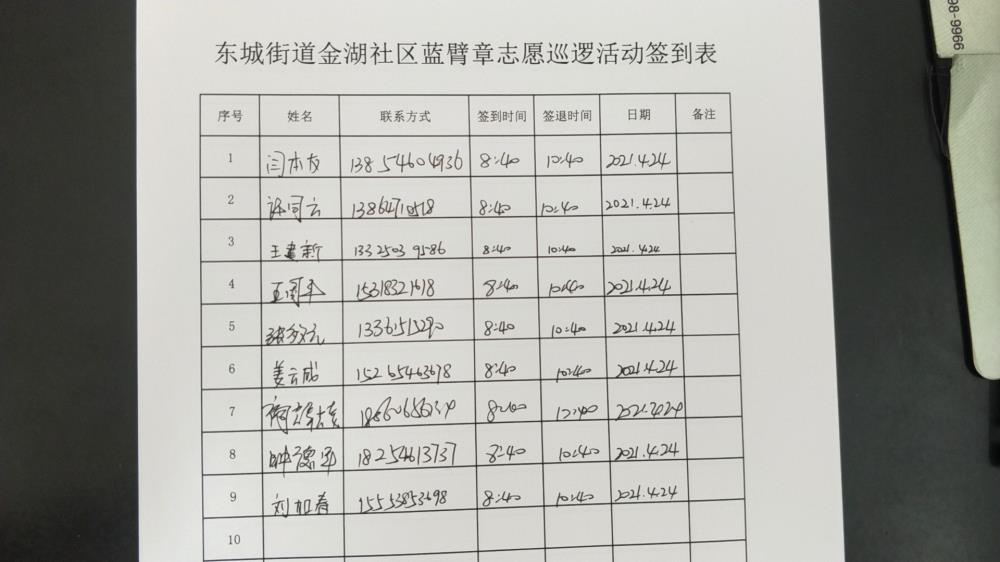 98-9966
东城街道金湖社区蓝臂章志愿巡逻活动签到表
序号 姓名 联系方式 签到时间 签退时间 日期 备注
1 闫本友 13854604936 8:40 10:40 2021.4.24
2 许同云 13864710518 8:40 10:40 2021.4.24
3 王建新 13325039586 8:40 10:40 2021.4.24
4 王国平 15318321618 8:40 10:40 2021.4.24
5 13361515290 8:40 10:40 2021.4.24
6 姜云成 15265463678 8:40 10:40 2021.4.24
7
8 钟德军 18254613737 8:40 10:40 2021.4.24
9 刘加春 15553853698 8:40 10:40 2021.4.24
10